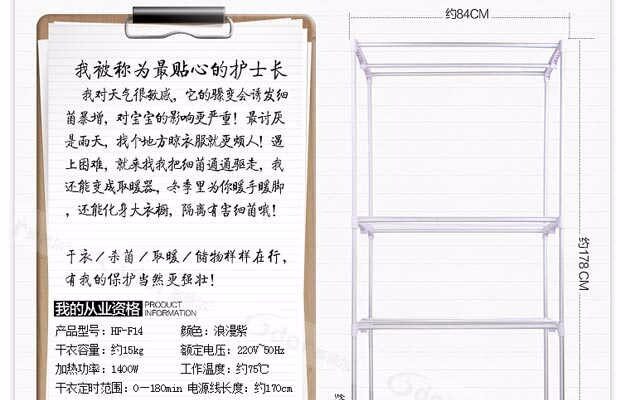 我被称为最贴心的护士长
我对天气很敏感，它的骤变会诱发细
菌暴增，对宝宝的影响更严重！最讨厌
是雨天，找个地方晾衣服就更烦人！遇
上困难，就来找我把细菌通通驱走，我
还能变成取暖器，冬季里为你暖手暖脚
，还能化身大衣橱，隔离有害细菌哦！
干衣/杀菌/取暖/储物样样在行，
有我的保护当然更强壮！
我的从业资格 PRODUCT INFORMATION
产品型号：HF-F14 颜色：浪漫紫
干衣容量：约15kg 额定电压：220V~50Hz
加热功率：1400W 工作温度：约75℃
干衣定时范围：0—180min 电源线长度：约170cm
约84CM
约178CM